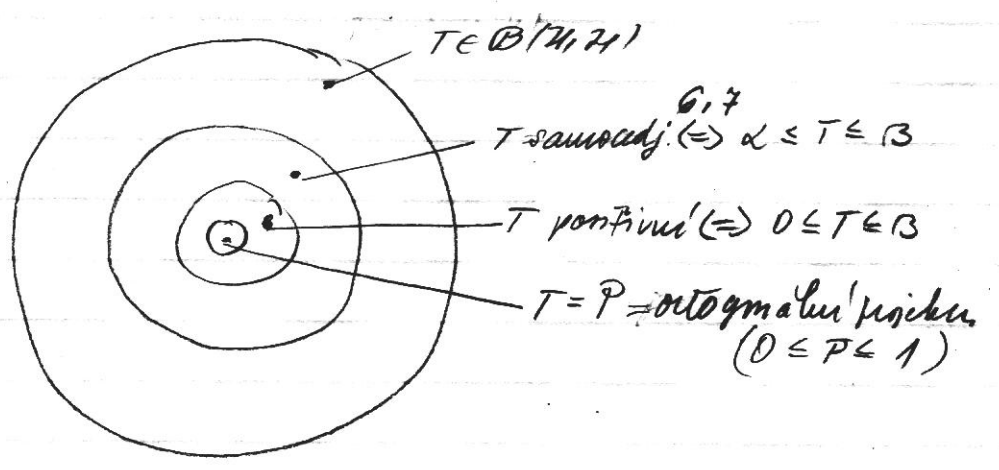 T ∈ B(H,H)
6,7
T samoadj. (=) α ≤ T ≤ β
T pozitivní (=) 0 ≤ T ≤ β
T = P = ortogonální projekce
(0 ≤ P ≤ 1)